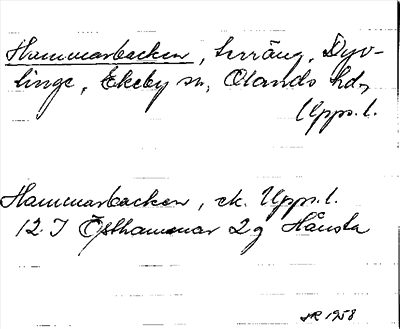 Hammarbacken, terräng, Dyv-
linge, Ekeby sn, Olands hd,
Upps. l.
Hammarbacken, ek. Upps. l.
12 I Östhammar 2g Hånsta
1958